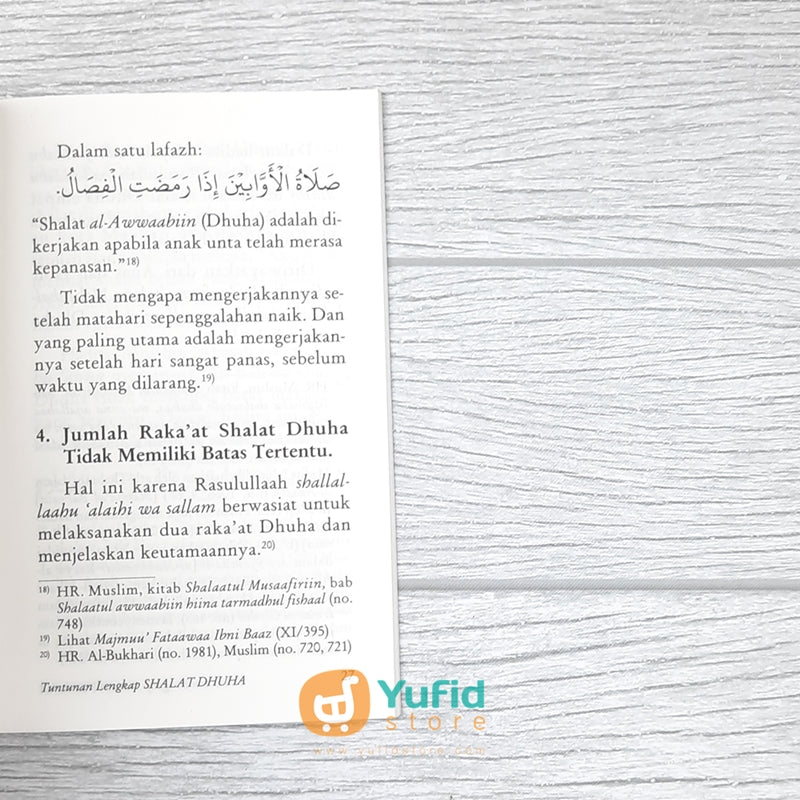 Dalam satu lafazh:
صَلَاةُ الْأَوَّابِيْنَ إِذَا رَمَضَتِ الْفِصَالُ.
“Shalat al-Awwaabiin (Dhuha) adalah di-
kerjakan apabila anak unta telah merasa
kepanasan.”18)
Tidak mengapa mengerjakannya se-
telah matahari sepenggalahan naik. Dan
yang paling utama adalah mengerjakan-
nya setelah hari sangat panas, sebelum
waktu yang dilarang.19)
4. Jumlah Raka’at Shalat Dhuha
Tidak Memiliki Batas Tertentu.
Hal ini karena Rasulullaah shallal-
laahu ‘alaihi wa sallam berwasiat untuk
melaksanakan dua raka’at Dhuha dan
menjelaskan keutamaannya.20)
18) HR. Muslim, kitab Shalaatul Musaafiriin, bab
Shalaatul awwaabiin hiina tarmadhul fishaal (no.
748)
19) Lihat Majmuu’ Fataawaa Ibni Baaz (XI/395)
20) HR. Al-Bukhari (no. 1981), Muslim (no. 720, 721)
Tuntunan Lengkap SHALAT DHUHA
Yufid
store
www.yufidstore.com